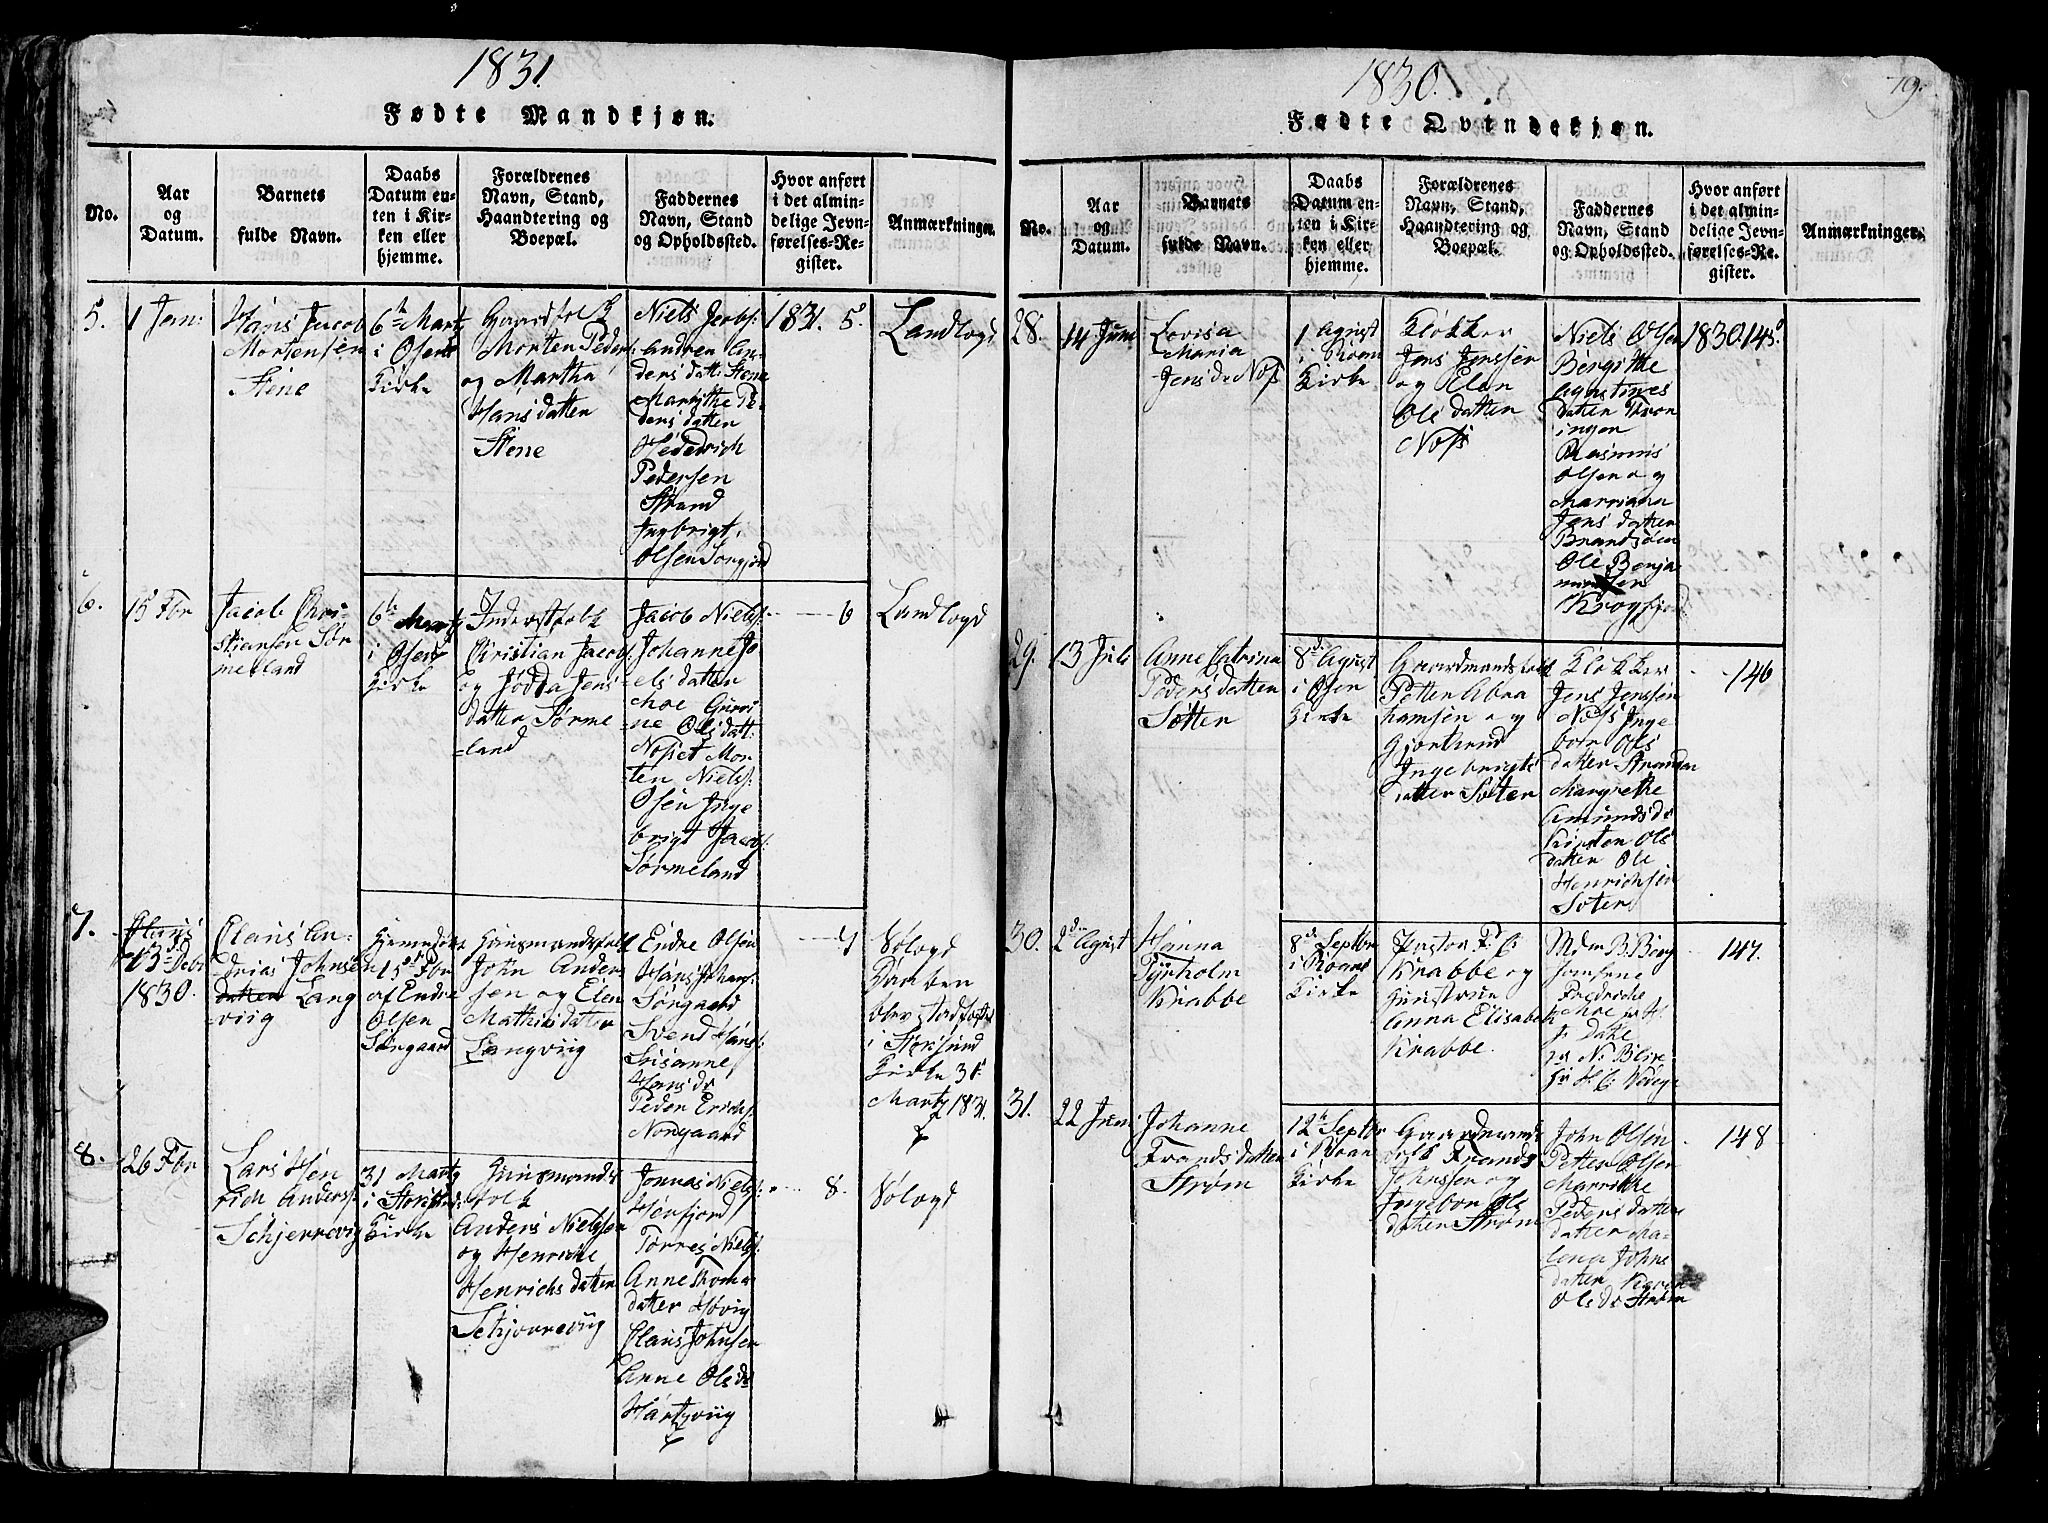 1831.
Fødte Mandkjøn.
No.
Aar
og
Datum.
Barnets
fulde Navn.
Daabs
Datum en-
ten i Kir-
ken eller
hjemme.
Forældrenes
Navn, Stand,
Haandtering og
Boepæl.
Faddernes
Navn, Stand
og Opholdssted.
Hvor anført
i det almin-
delige Jevn-
førelses-Re-
gister.
Anmærkninger.
5.
1 Jan:
Hans Jacob
Mortensen
Stene
6te Martz
i Osen
Kirke
Gaardfolk
Morten Peders:
og Martha
Hans datter
Stene
Niels Jerbs:
Andren An-
ders datt: Stene
Marithe Pe-
ders datter
Hederich
Pedersen
Strand
Ingbrigt
Olsen Sørgjerd
1831. 5.
Landlogd
6.
15 Fbr
Jacob Chri-
stiansen Sør-
meland
6te Martz
i Osen
Kirke
Inderstfolk
Christian Jacobs:
og Jødda Jens
datter Sørme
=land
Jacob Niels:
Johanne Jo
els datter
hoe Gurri
=ne Ols datt:
Noset Mor
=ten Niels:
Osen Inge
brigt Jacobs:
Sørmeland
6
Landlogd
7.
13de Debr
1830.
Claus An-
drias Johnsen
datter Lang
=viig
Hjemmedøbt
15de Fbr
af Endre
Olsen
Sørgaard
Huusmandsfolk
John Ander
sen og Elen
Mathias datter
Langviig
Endre Olsen
Hans Johan:
Sørgaard
Svend Hans:
Susanne
Hans dr
Peder Erichs:
Norgaard
7
Sølogd
Barnet
blev stadfæstet
i Stoksund
Kirke 31
Martz 1831.
8.
26 Fbr
Lars Hen
rich Anders:
Schjerrevig
31 Martz
i Stoksunds
Kirke
Huusmands
folk
Anders Nielsen
og Henriche
Henrichs datter
Schjerreviig
Jonnas Niels:
Hørfjord
Torres Niels:
Anne Thoma
datter Høvig
Claus Johnsen
Anne Ols dr
Hartviig
8.
Sølogd
1830.
79.
Fødte Qvindekjøn.
No.
Aar
og
Datum.
Barnets
fulde Navn.
Daabs
Datum en-
ten i Kir-
ken eller
hjemme.
Forældrenes
Navn, Stand,
Haandtering og
Boepæl.
Faddernes
Navn, Stand
og Opholdssted.
Hvor anført
i det almin-
delige Jevn-
førelses-Re-
gister.
Anmærkninger.
28.
14 Juni
Lovisa
Maria
Jens dr Nos
1 Agust
i Roan
Kirke
Klokker
Jens Jenssen
og Elen
Ols datter
Nos
Niels Olsen
Bergitthe
Agustines
datter
Rasmus
Olsen og
Marriana
Jens datter
Brandsøen
Ole Benja
minsen
Krogfjord
1830. 145.
29.
13 Juli
Anne Catrina
Peders datter
Sætter
8de Agust
i Osen
Kirke
Gaardmandsfolk
Petter Abra
hamsen og
Gjertrud
Ingebrigts
datter Sætter
Klokker
Jens Jenssen
Nos Inge
bor Ols
datter Stranden
Margrethe
Amunds dr
Kirsten Ols
datter Ole
Henrichsen
Sæter
146
30.
2de Agust
Hanna
Tyrholm
Krabbe
8de Septbr
i Roans
Kirke
Pastor F. C.
Krabbe og
Hustrue
Anna Elisabeth
Krabbe.
147.
31.
22 Juni
Johanne
Frands datter
Strøm
12te Septbr
i Roan
Kirke
Gaardmands
folk Frands
Johnsen og
Ingebor Ols
datter Strøm
John Olsen
Petter Olsen
Marrithe
Peders datter
datter Ma-
lena Johns
datter Karen
Ols dr Strøm
148